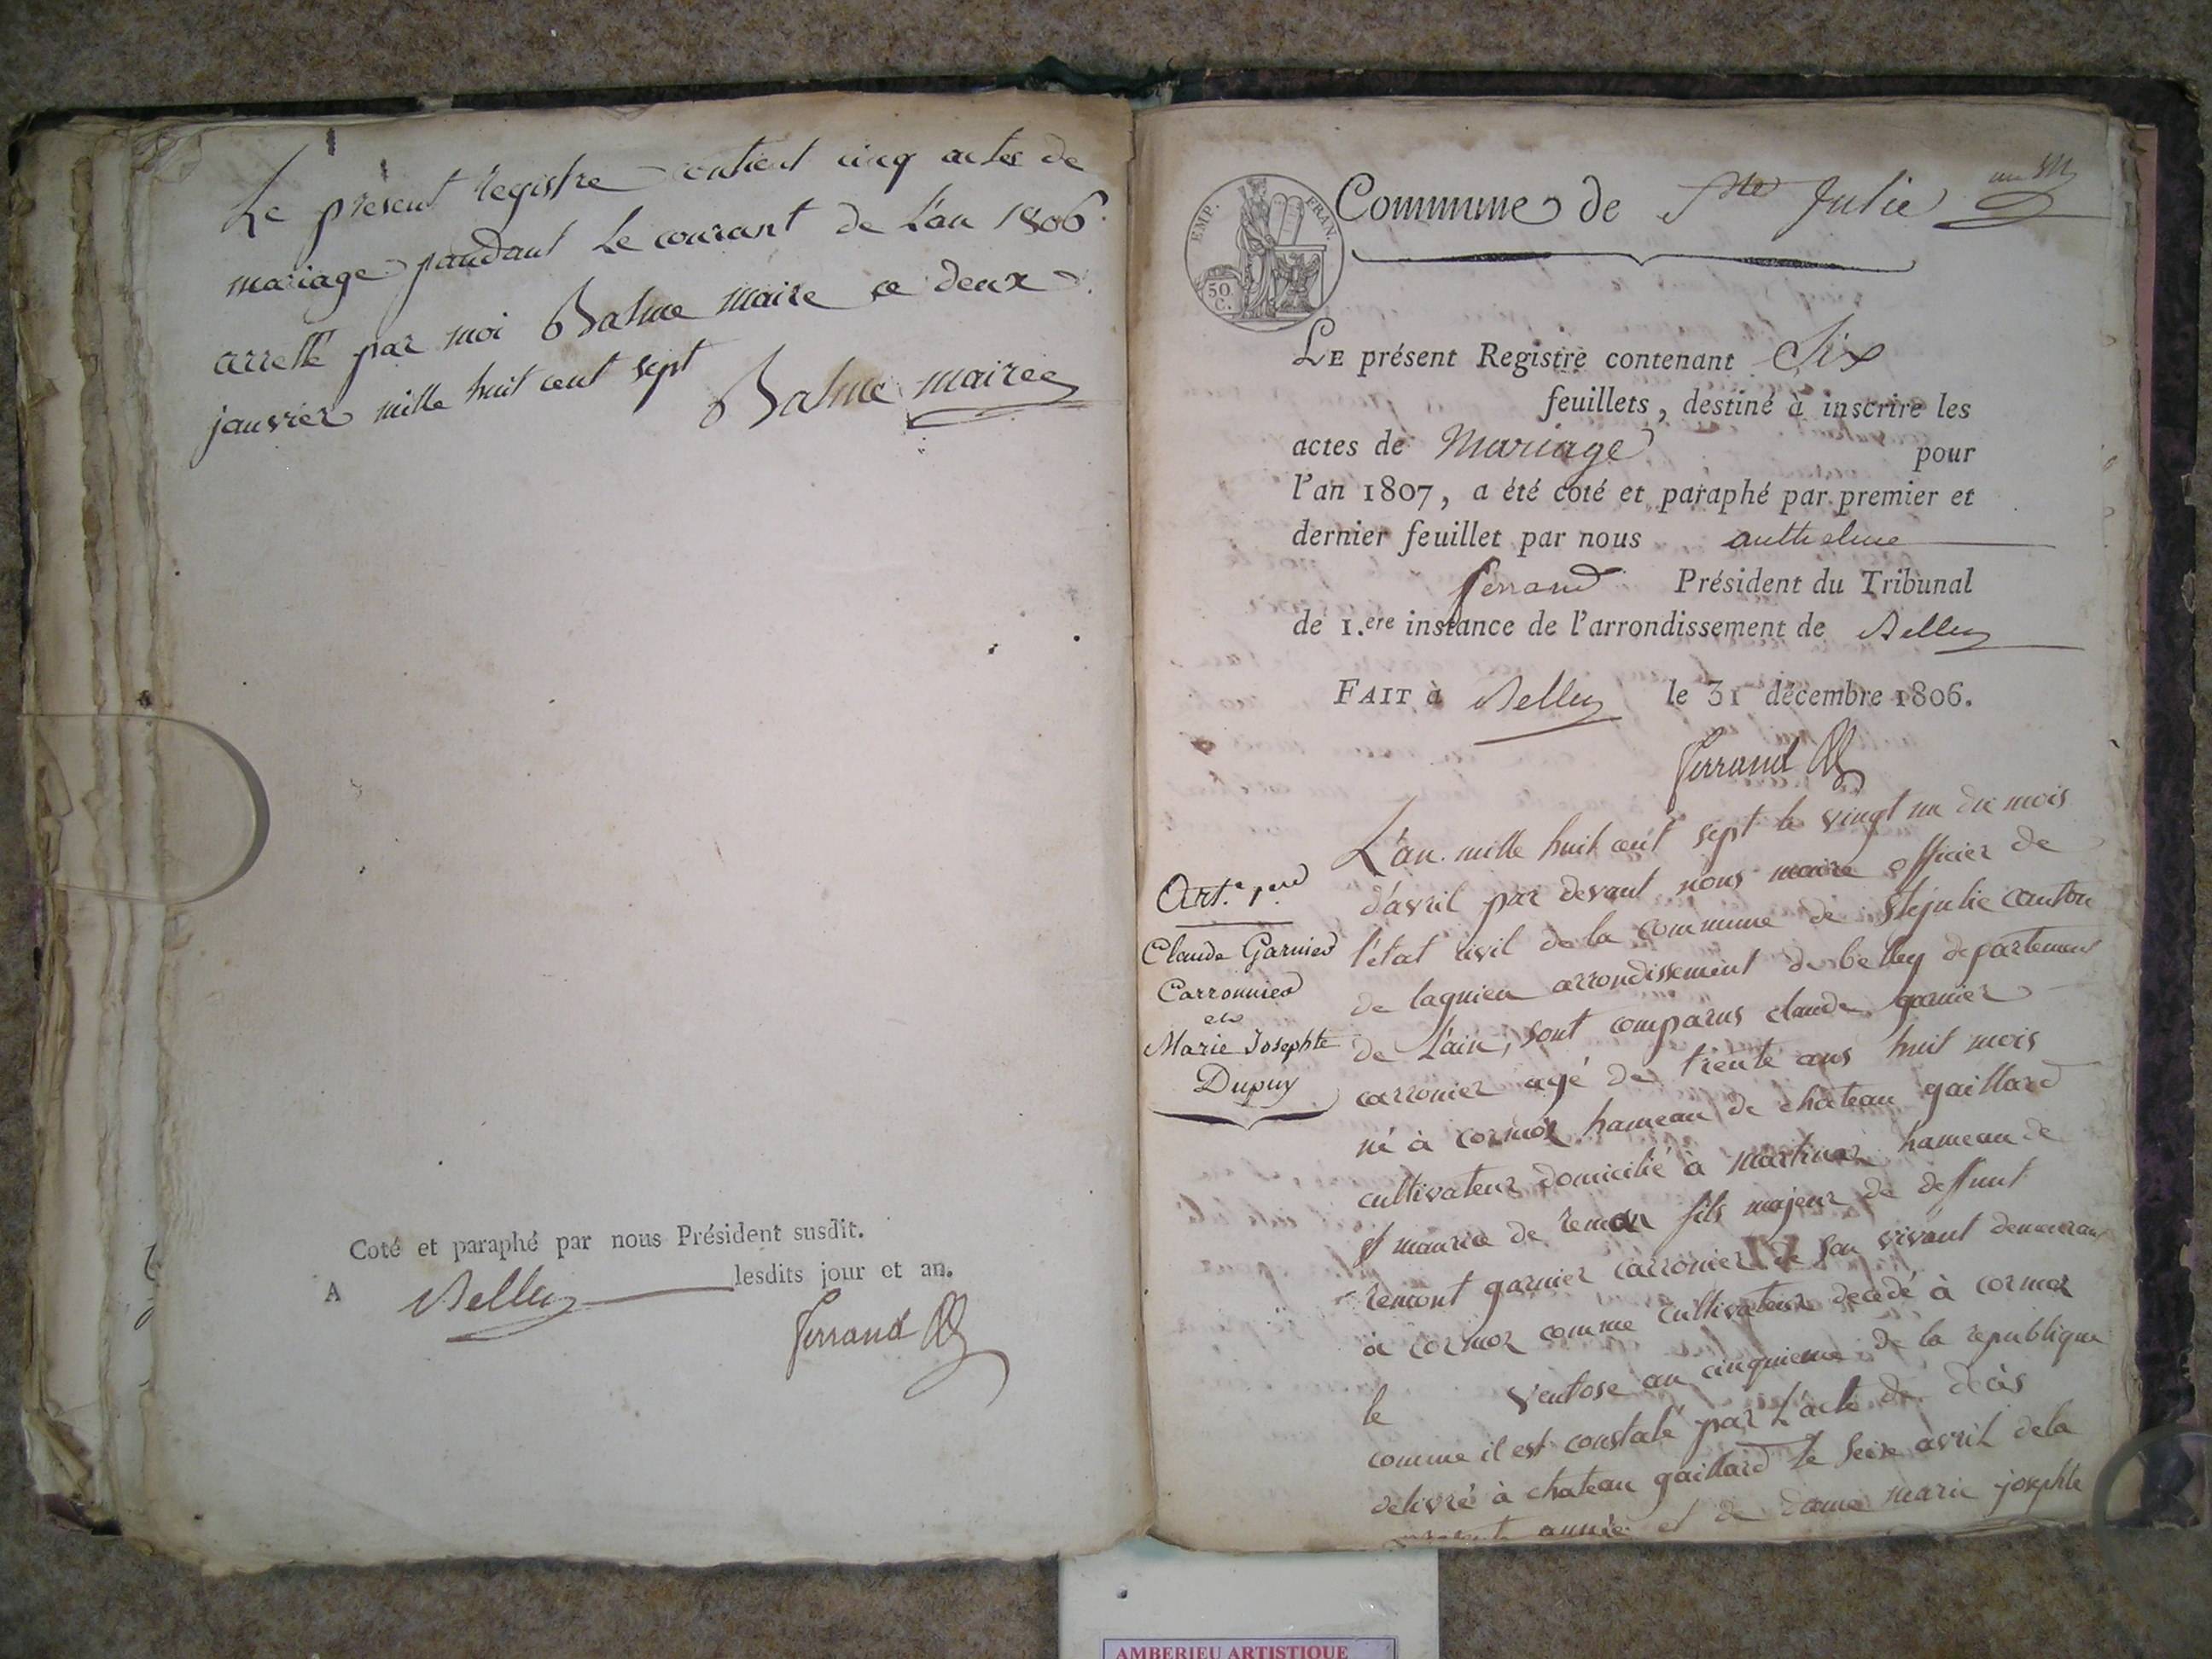 Le présent registre contient cinq actes de
mariage pandant le courant de L'an 1806
arretté par moi Balme maire ce deux
janvier mille huit cent sept
Balme maire
Coté et paraphé par nous Président susdit.
A Belley lesdits jour et an.
Ferrand
EMP. FRAN.
50 C.
Commune de Ste Julie
LE présent Registre contenant Six
feuillets, destiné à inscrire les
actes de Mariage pour
l'an 1807, a été coté et paraphé par premier et
dernier feuillet par nous anthelme
ferrand Président du Tribunal
de 1.ere instance de l'arrondissement de Belley
FAIT à Belley le 31 décembre 1806.
Ferrand
Art.e 1.er
Claude Garnier
Carronnier
et
Marie Josephte
Dupuy
L'an mille huit cent sept le vingt un du mois
d'avril par devant nous maire officier de
l'état civil de la commune de Ste julie canton
de lagnieu arrondissement de belley departement
de L'ain, sont comparus claude garnier
carronier agé de trente ans huit mois
né à cormoz hameau de chateau gaillard
cultivateur domicilié à martinaz hameau de
st maurice de reman fils majeur de deffunt
remont garnier carronier de son vivant demeurant
à cormoz comme cultivateur decedé à cormoz
le ventose an cinquieme de la republique
comme il est constaté par L'acte de décès
delivré à chateau gaillard le seize avril dela
presente année et de dame marie josephte
AMBERIEU ARTISTIQUE